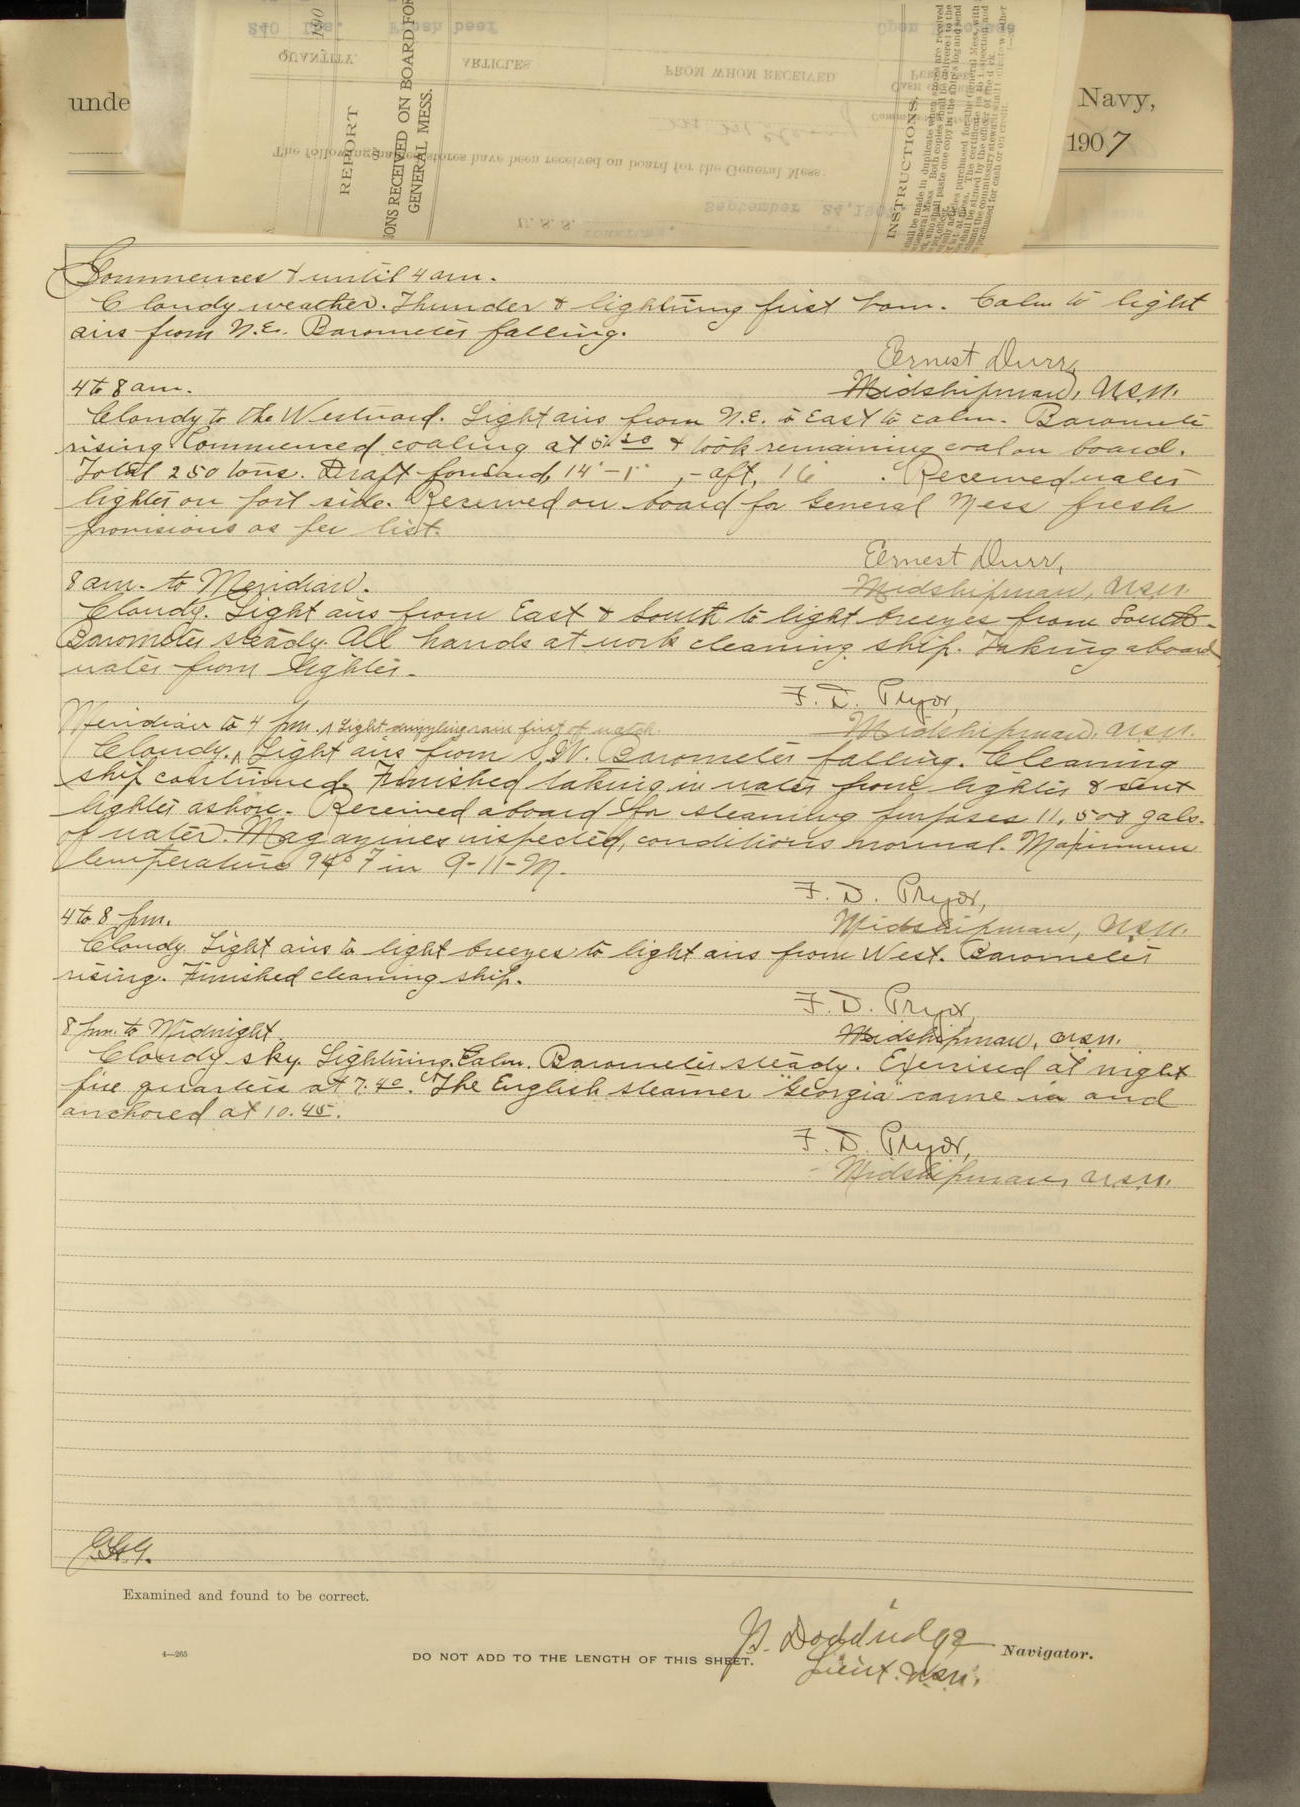 240 lbs. Fresh beef Open Purchase
QUANTITY. ARTICLES FROM WHOM RECEIVED
The following-named stores have been received on board for the General Mess.
September 24, 190
U. S. S.
190
REPORT
ONS RECEIVED ON BOARD FOR
GENERAL MESS.
INSTRUCTIONS.
unde
Navy,
1907
Commences & until 4 am.
Cloudy weather. Thunder & lightning first hour. Calm to light
airs from N.E. Barometer falling.
Ernest Durr,
Midshipman, U.S.N.
4 to 8 am.
Cloudy to the Westward. Light airs from N.E. to East to calm. Barometer
rising. Commenced coaling at 5.20 & took remaining coal on board.
Total 250 tons. Draft forward, 14'-1", - aft, 16' . Received water
lighter on port side. Received on board for General Mess fresh
provisions as per list.
Ernest Durr,
Midshipman, U.S.N.
8 am. to Meridian.
Cloudy. Light airs from East & South to light breezes from South.
Barometer steady. All hands at work cleaning ship. Taking aboard
water from lighter.
F. D. Pryor,
Midshipman, U.S.N.
Meridian to 4 pm. ^ Light drizzling rain first of watch.
Cloudy.^ Light airs from S.W. Barometer falling. Cleaning
ship continued. Finished taking in water from lighter & sent
lighter ashore. Received aboard for steaming purposes 11,508 gals.
of water. Magazines inspected, conditions normal. Maximum
temperature 94° F in 9-11-M.
F. D. Pryor,
Midshipman, U.S.N.
4 to 8 pm.
Cloudy. Light airs to light breezes to light airs from West. Barometer
rising. Finished cleaning ship.
F. D. Pryor,
Midshipman, U.S.N.
8 pm. to Midnight.
Cloudy sky. Lightning. Calm. Barometer steady. Exercised at night
fire quarters at 7.40. The English steamer "Georgia" came in and
anchored at 10.45.
F. D. Pryor,
Midshipman, U.S.N.
Examined and found to be correct.
J. S. Doddridge
Lieut. U.S.N. Navigator.
4—265
DO NOT ADD TO THE LENGTH OF THIS SHEET.